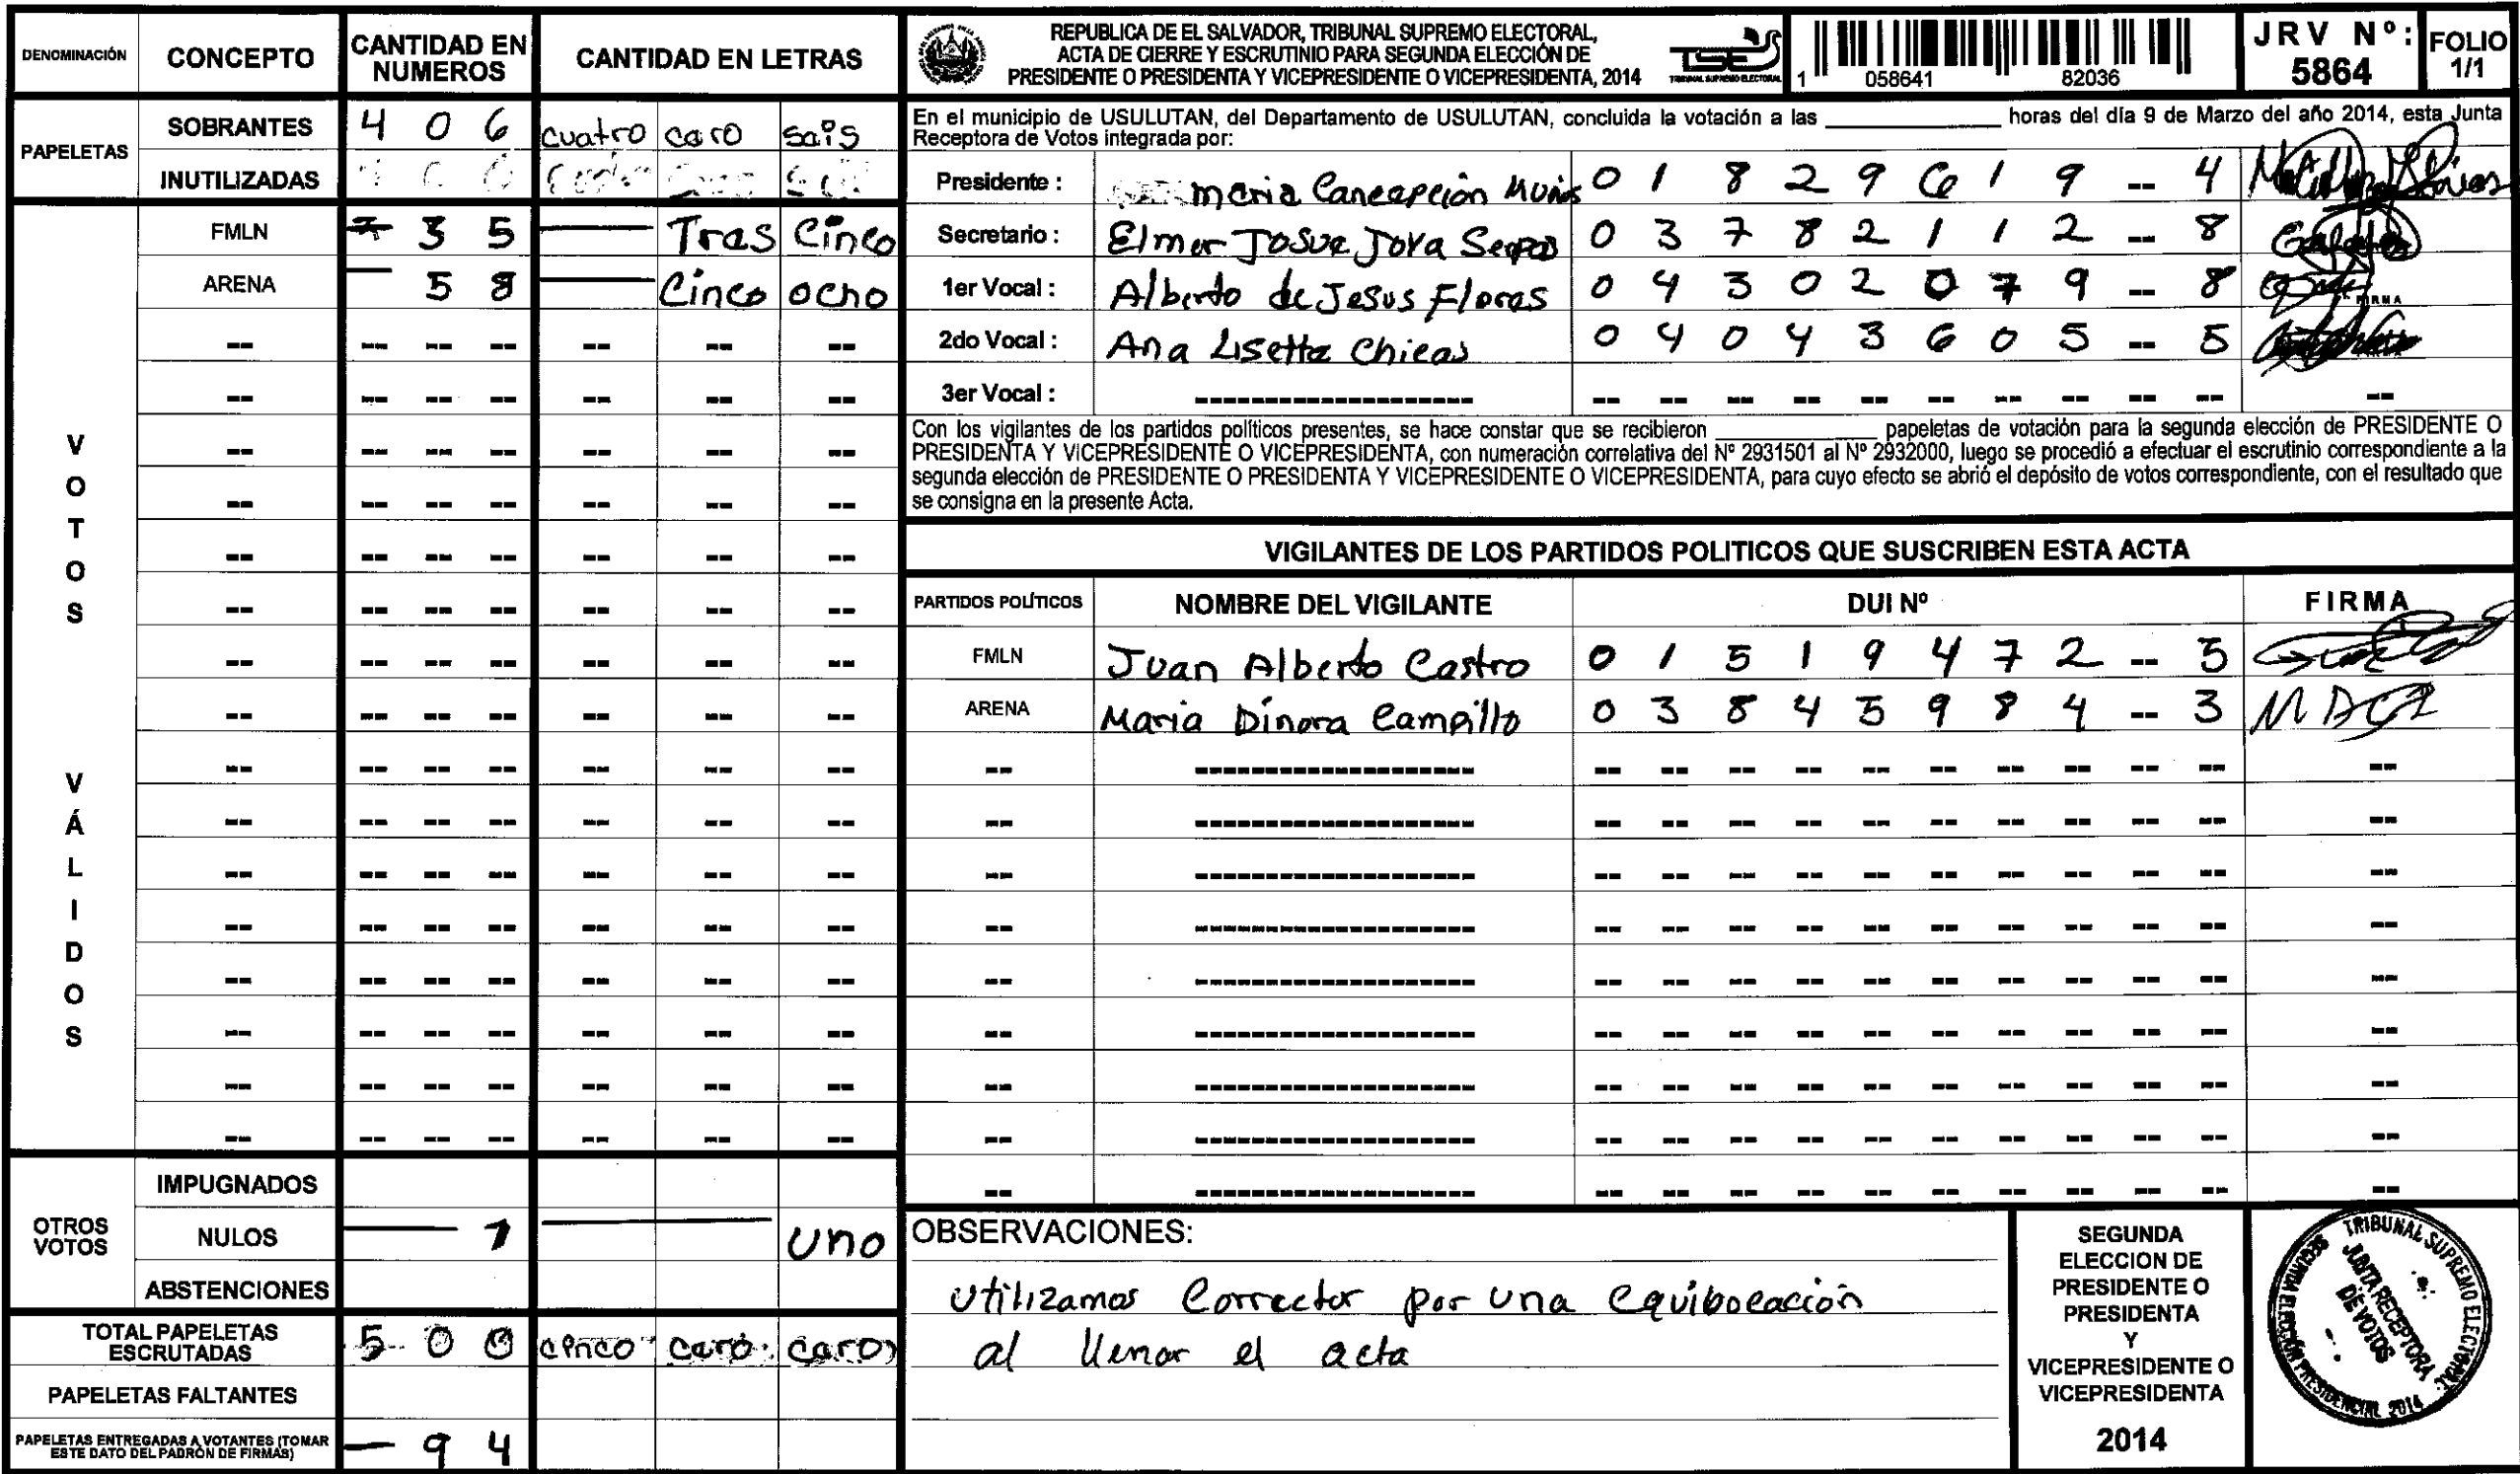 DENOMINACIÓN CONCEPTO CANTIDAD EN NUMEROS CANTIDAD EN LETRAS
PAPELETAS
SOBRANTES 4 0 6 cuatro cero seis
INUTILIZADAS
VOTOS VÁLIDOS
FMLN 3 5 Tres Cinco
ARENA 5 8 Cinco ocho
OTROS VOTOS
IMPUGNADOS
NULOS 1 uno
ABSTENCIONES
TOTAL PAPELETAS ESCRUTADAS 5 0 0 cinco cero cero
PAPELETAS FALTANTES
PAPELETAS ENTREGADAS A VOTANTES (TOMAR ESTE DATO DEL PADRÓN DE FIRMAS) 9 4
REPUBLICA DE EL SALVADOR, TRIBUNAL SUPREMO ELECTORAL,
ACTA DE CIERRE Y ESCRUTINIO PARA SEGUNDA ELECCIÓN DE
PRESIDENTE O PRESIDENTA Y VICEPRESIDENTE O VICEPRESIDENTA, 2014
TSE
TRIBUNAL SUPREMO ELECTORAL
1 058641 82036
JRV Nº: 5864
FOLIO 1/1
En el municipio de USULUTAN, del Departamento de USULUTAN, concluida la votación a las ____________ horas del día 9 de Marzo del año 2014, esta Junta
Receptora de Votos integrada por:
Presidente : maria Concepción 0 1 8 2 9 6 1 9 -- 4
Secretario : Elmer Josue Jova 0 3 7 8 2 1 1 2 -- 8
1er Vocal : Alberto de Jesus Flores 0 4 3 0 2 0 7 9 -- 8 FIRMA
2do Vocal : Ana Lisette Chicas 0 4 0 4 3 6 0 5 -- 5
3er Vocal :
Con los vigilantes de los partidos políticos presentes, se hace constar que se recibieron ____________ papeletas de votación para la segunda elección de PRESIDENTE O
PRESIDENTA Y VICEPRESIDENTE O VICEPRESIDENTA, con numeración correlativa del Nº 2931501 al Nº 2932000, luego se procedió a efectuar el escrutinio correspondiente a la
segunda elección de PRESIDENTE O PRESIDENTA Y VICEPRESIDENTE O VICEPRESIDENTA, para cuyo efecto se abrió el depósito de votos correspondiente, con el resultado que
se consigna en la presente Acta.
VIGILANTES DE LOS PARTIDOS POLITICOS QUE SUSCRIBEN ESTA ACTA
PARTIDOS POLÍTICOS NOMBRE DEL VIGILANTE DUI Nº FIRMA
FMLN Juan Alberto Castro 0 1 5 1 9 4 7 2 -- 5
ARENA Maria Dinora Campillo 0 3 8 4 5 9 8 4 -- 3
OBSERVACIONES:
Utilizamos Corrector por una equibocación
al llenar el acta
SEGUNDA
ELECCION DE
PRESIDENTE O
PRESIDENTA
Y
VICEPRESIDENTE O
VICEPRESIDENTA
2014
TRIBUNAL SUPREMO ELECTORAL
JUNTA RECEPTORA
DE VOTOS
SEGUNDA ELECCIÓN PRESIDENCIAL 2014